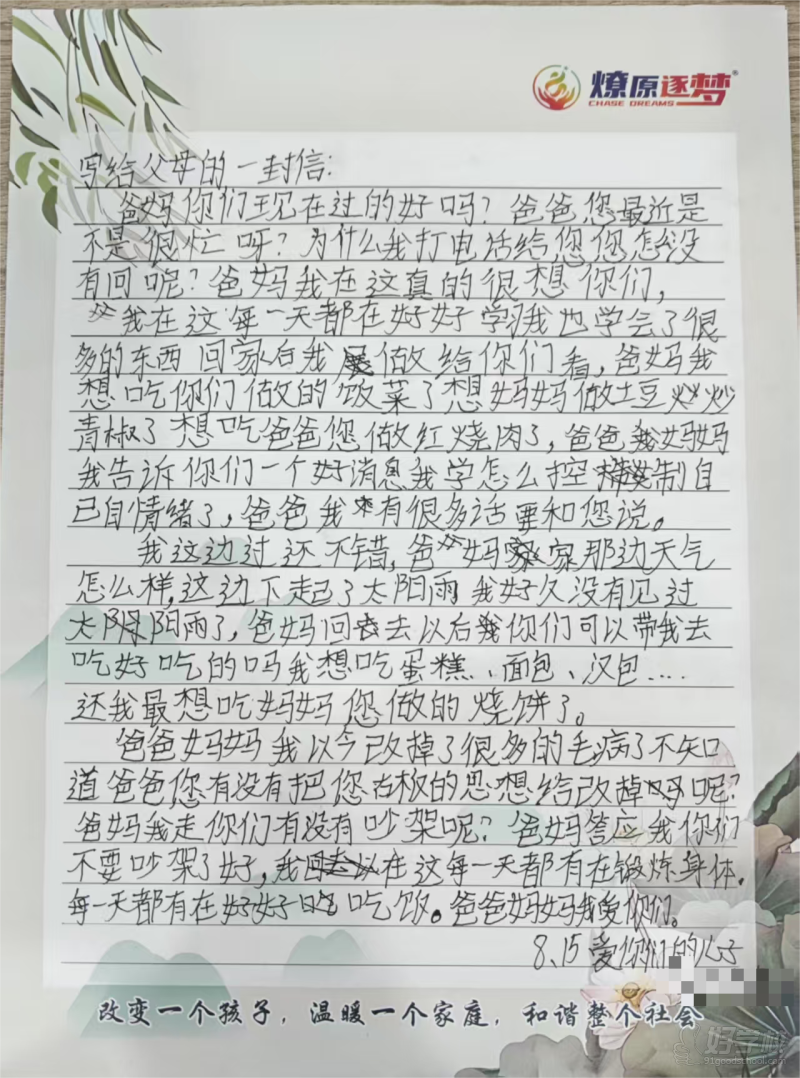 燎原逐梦
CHASE DREAMS
写给父母的一封信:
爸妈你们现在过的好吗?爸爸您最近是
不是很忙呀?为什么我打电话给您您怎没
有回呢?爸妈我在这真的很想你们,
我在这每一天都在好好学习我也学会了很
多的东西回家后我做给你们看,爸妈我
想吃你们做的饭菜了想妈妈做土豆炒
青椒了想吃爸爸您做红烧肉了,爸爸妈妈
我告诉你们一个好消息我学怎么控制自
已自情绪了,爸爸我有很多话要和您说。
我这边过还不错,爸妈家那边天气
怎么样,这边下起了太阳雨我好久没有见过
太阳雨了,爸妈回去以后你们可以带我去
吃好吃的吗我想吃蛋糕、面包、汉包....
还我最想吃妈妈您做的烧饼了。
爸爸妈妈我以今改掉了很多的毛病了不知
道爸爸您有没有把您古板的思想给改掉呢?
爸妈我走你们有没有吵架呢?爸妈答应我你们
不要吵架了好,我在这每一天都有在锻炼身体.
每一天都有在好好吃饭。爸爸妈妈我爱你们。
8.15 爱你们的
改变一个孩子,温暖一个家庭,和谐整个社会
好学校
91goodschool.com